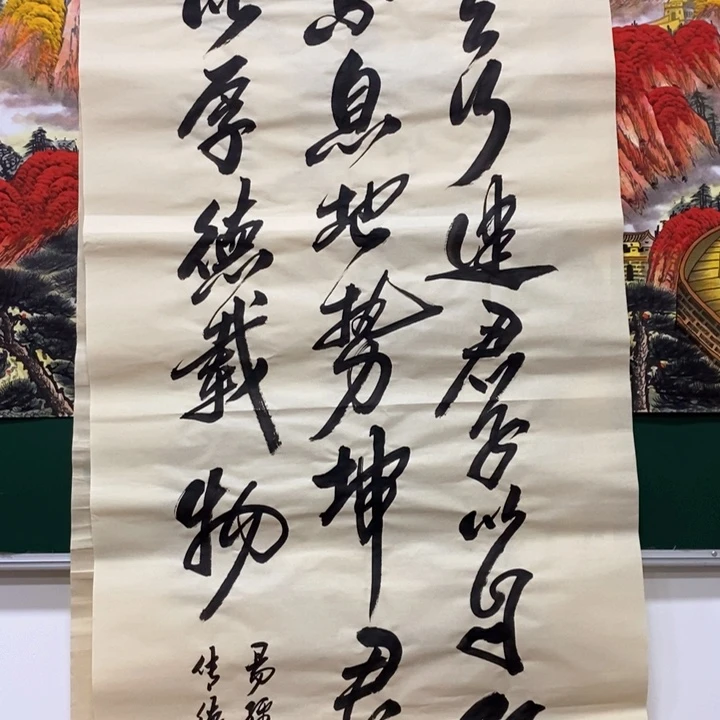 行健君子以自
息地势坤君
以厚德载物
易经